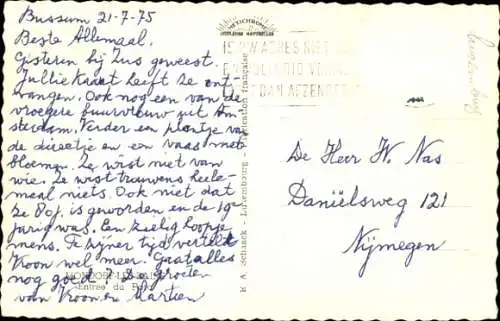 Bussum 21-7-75
Beste Allemaal.
Gisteren bij Zus geweest.
Jullie kaart heeft ze ont-
vangen. Ook nog een van de
vroegere buurvrouw uit Am-
sterdam. Verder een plantje van
de directie en een vaas met
bloemen. Ze wist niet van
wie. Ze wist trouwens heele-
maal niets. Ook niet dat
ze 80 j. is geworden en de 19e
jarig was. Een zielig hoopje
mens. Te zijner tijd vertelt
Koon wel meer. Gaat alles
nog goed? De groeten
van Koon en Martien
MONDORF-LES-BAINS
Entrée du Parc
E. A. Schaack - Luxembourg - Fabrication française
IS UW ADRES NIET
VOLLEDIG
DAN AFZENDER
De Heer W. Nas
Daniëlsweg 121
Nijmegen
Luxemburg